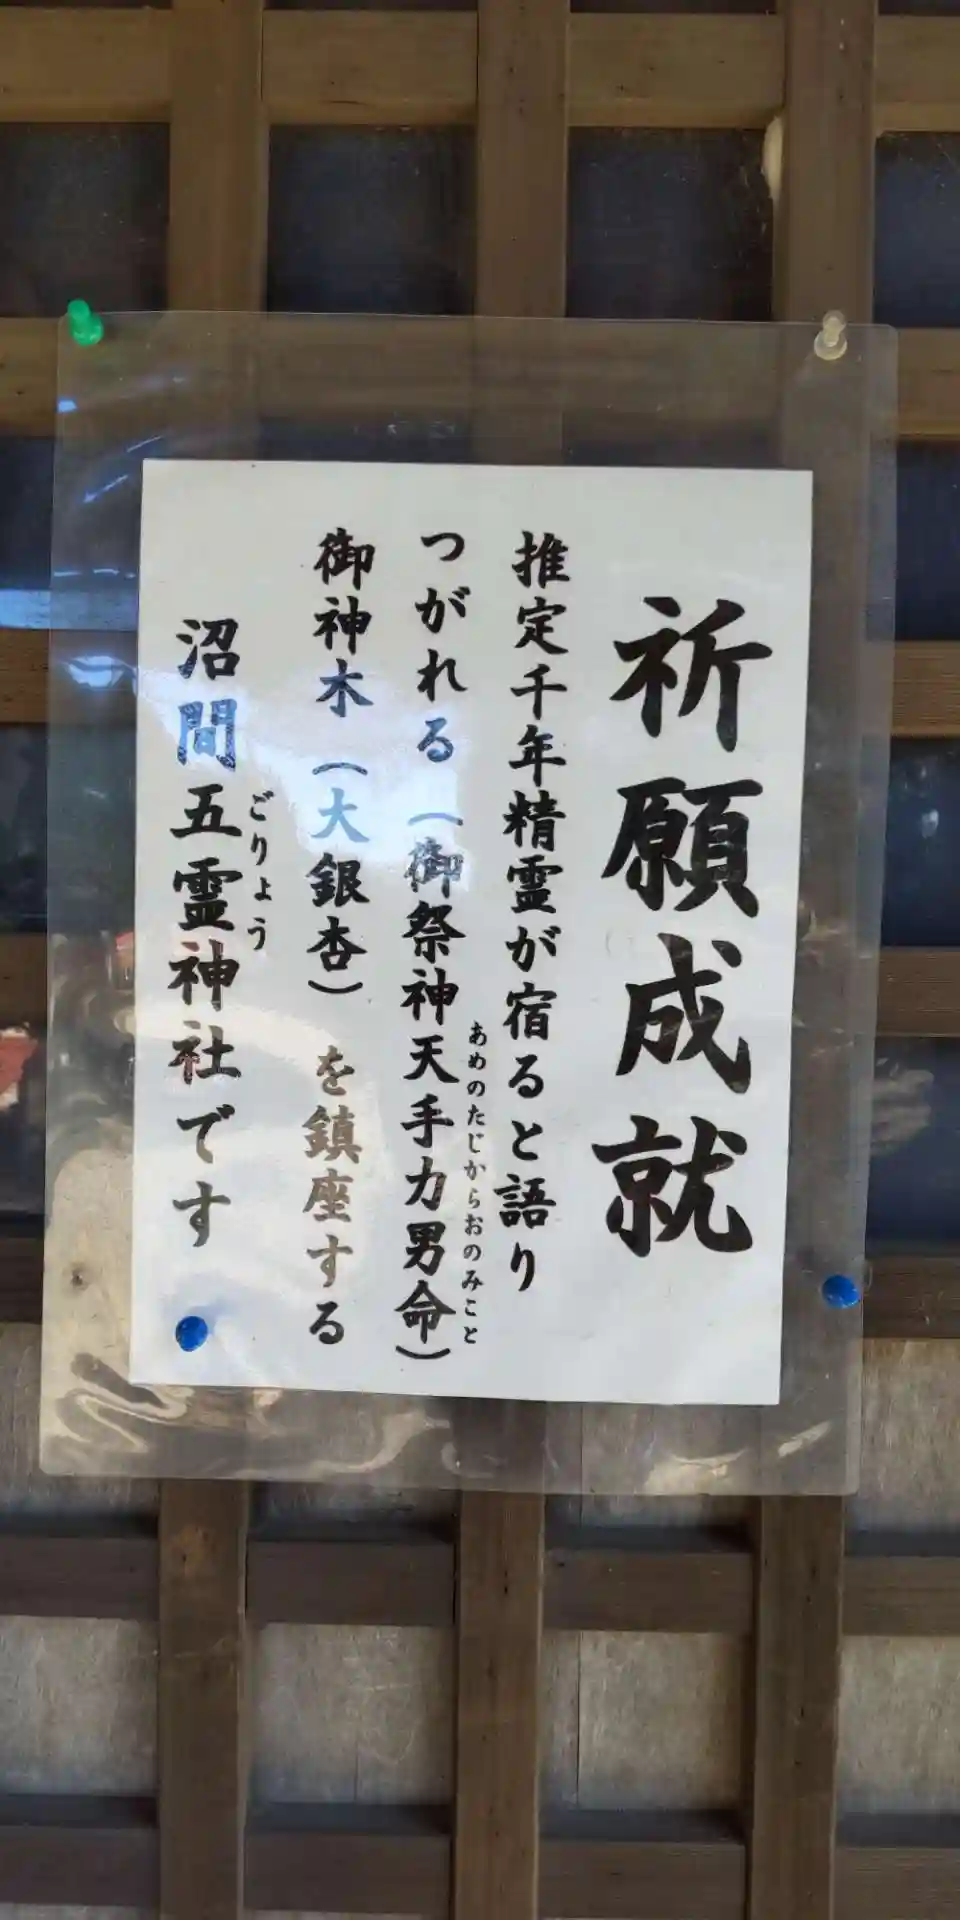 祈願成就
推定千年精霊が宿ると語り
つがれる(御祭神天手力男命)
あめのたじからおのみこと
御神木(大銀杏) を鎮座する
沼間五霊神社です
ごりょう